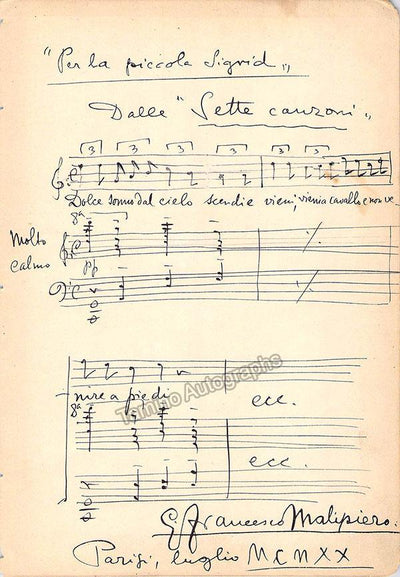 "Per la piccola Sigrid„
Dalle "Sette canzoni„
3 3 3 3 3 3
Dolce sonno dal cielo scendi e vieni, vieni a cavallo e non ve-
8ª
Molto
calmo
pp
nire a piedi
8ª
ecc.
ecc.
Tamino Autographs
G. Francesco Malipiero.
Parigi, luglio MCMXX